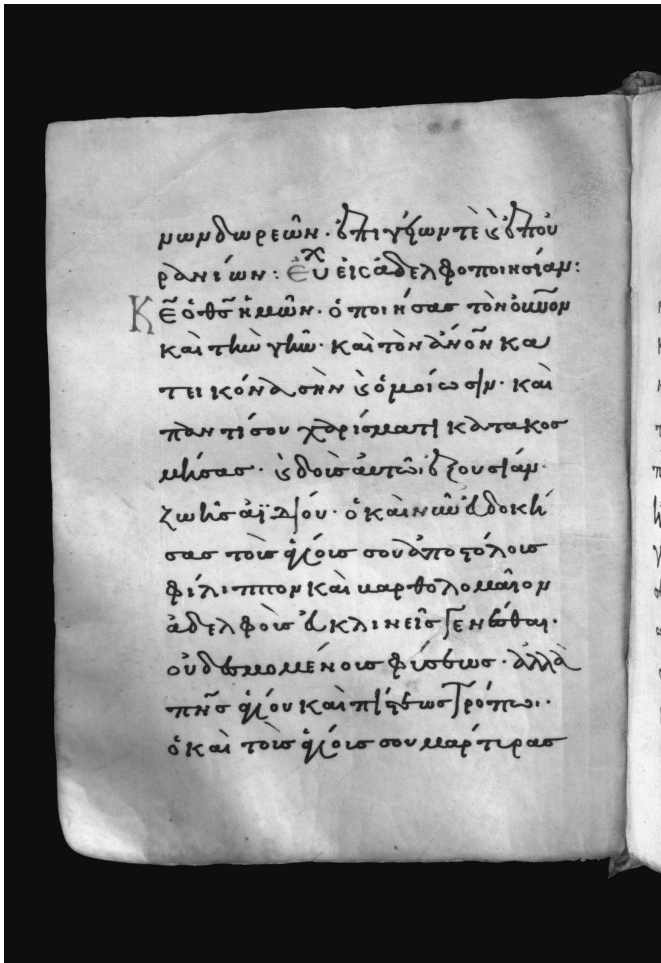 μων δωρεῶν· ἐπιγήων τὲ ϗ ἐπου
ρανιών: Εὐχ εἰς ἀδελφοποιησίαν:
Κε̅ ὁ θς̅ ἡμῶν· ὁ ποιήσας τὸν οὐνο̅ν
καὶ τὴν γῆν· καὶ τὸν ἀν̅ο̅ν κα
τεικόνα σὴν ϗ ὁμοίωσϊν· καὶ
παντί σου χαρίσματι κατακοσ
μήσας· ϗ δοὶς ἀυτῶι ἐξουσίαν·
ζωῆς ἀϊδίου· ὁ καὶ νῦν ἐυδοκή
σας τοὶς ἁγίοις σου ἀποστόλοις
φίλιππον καὶ βαρθολομαῖον
ἀδελφοὶς ἐκκλινεῖς γενέσθαι·
οὐ δεσμομένοις φίσεως· ἀλλὰ
πν̅ς ἁγίου καὶ πίστεως τρόπωι·
ὁ καὶ τοὶς ἁγίοις σου μάρτιρας